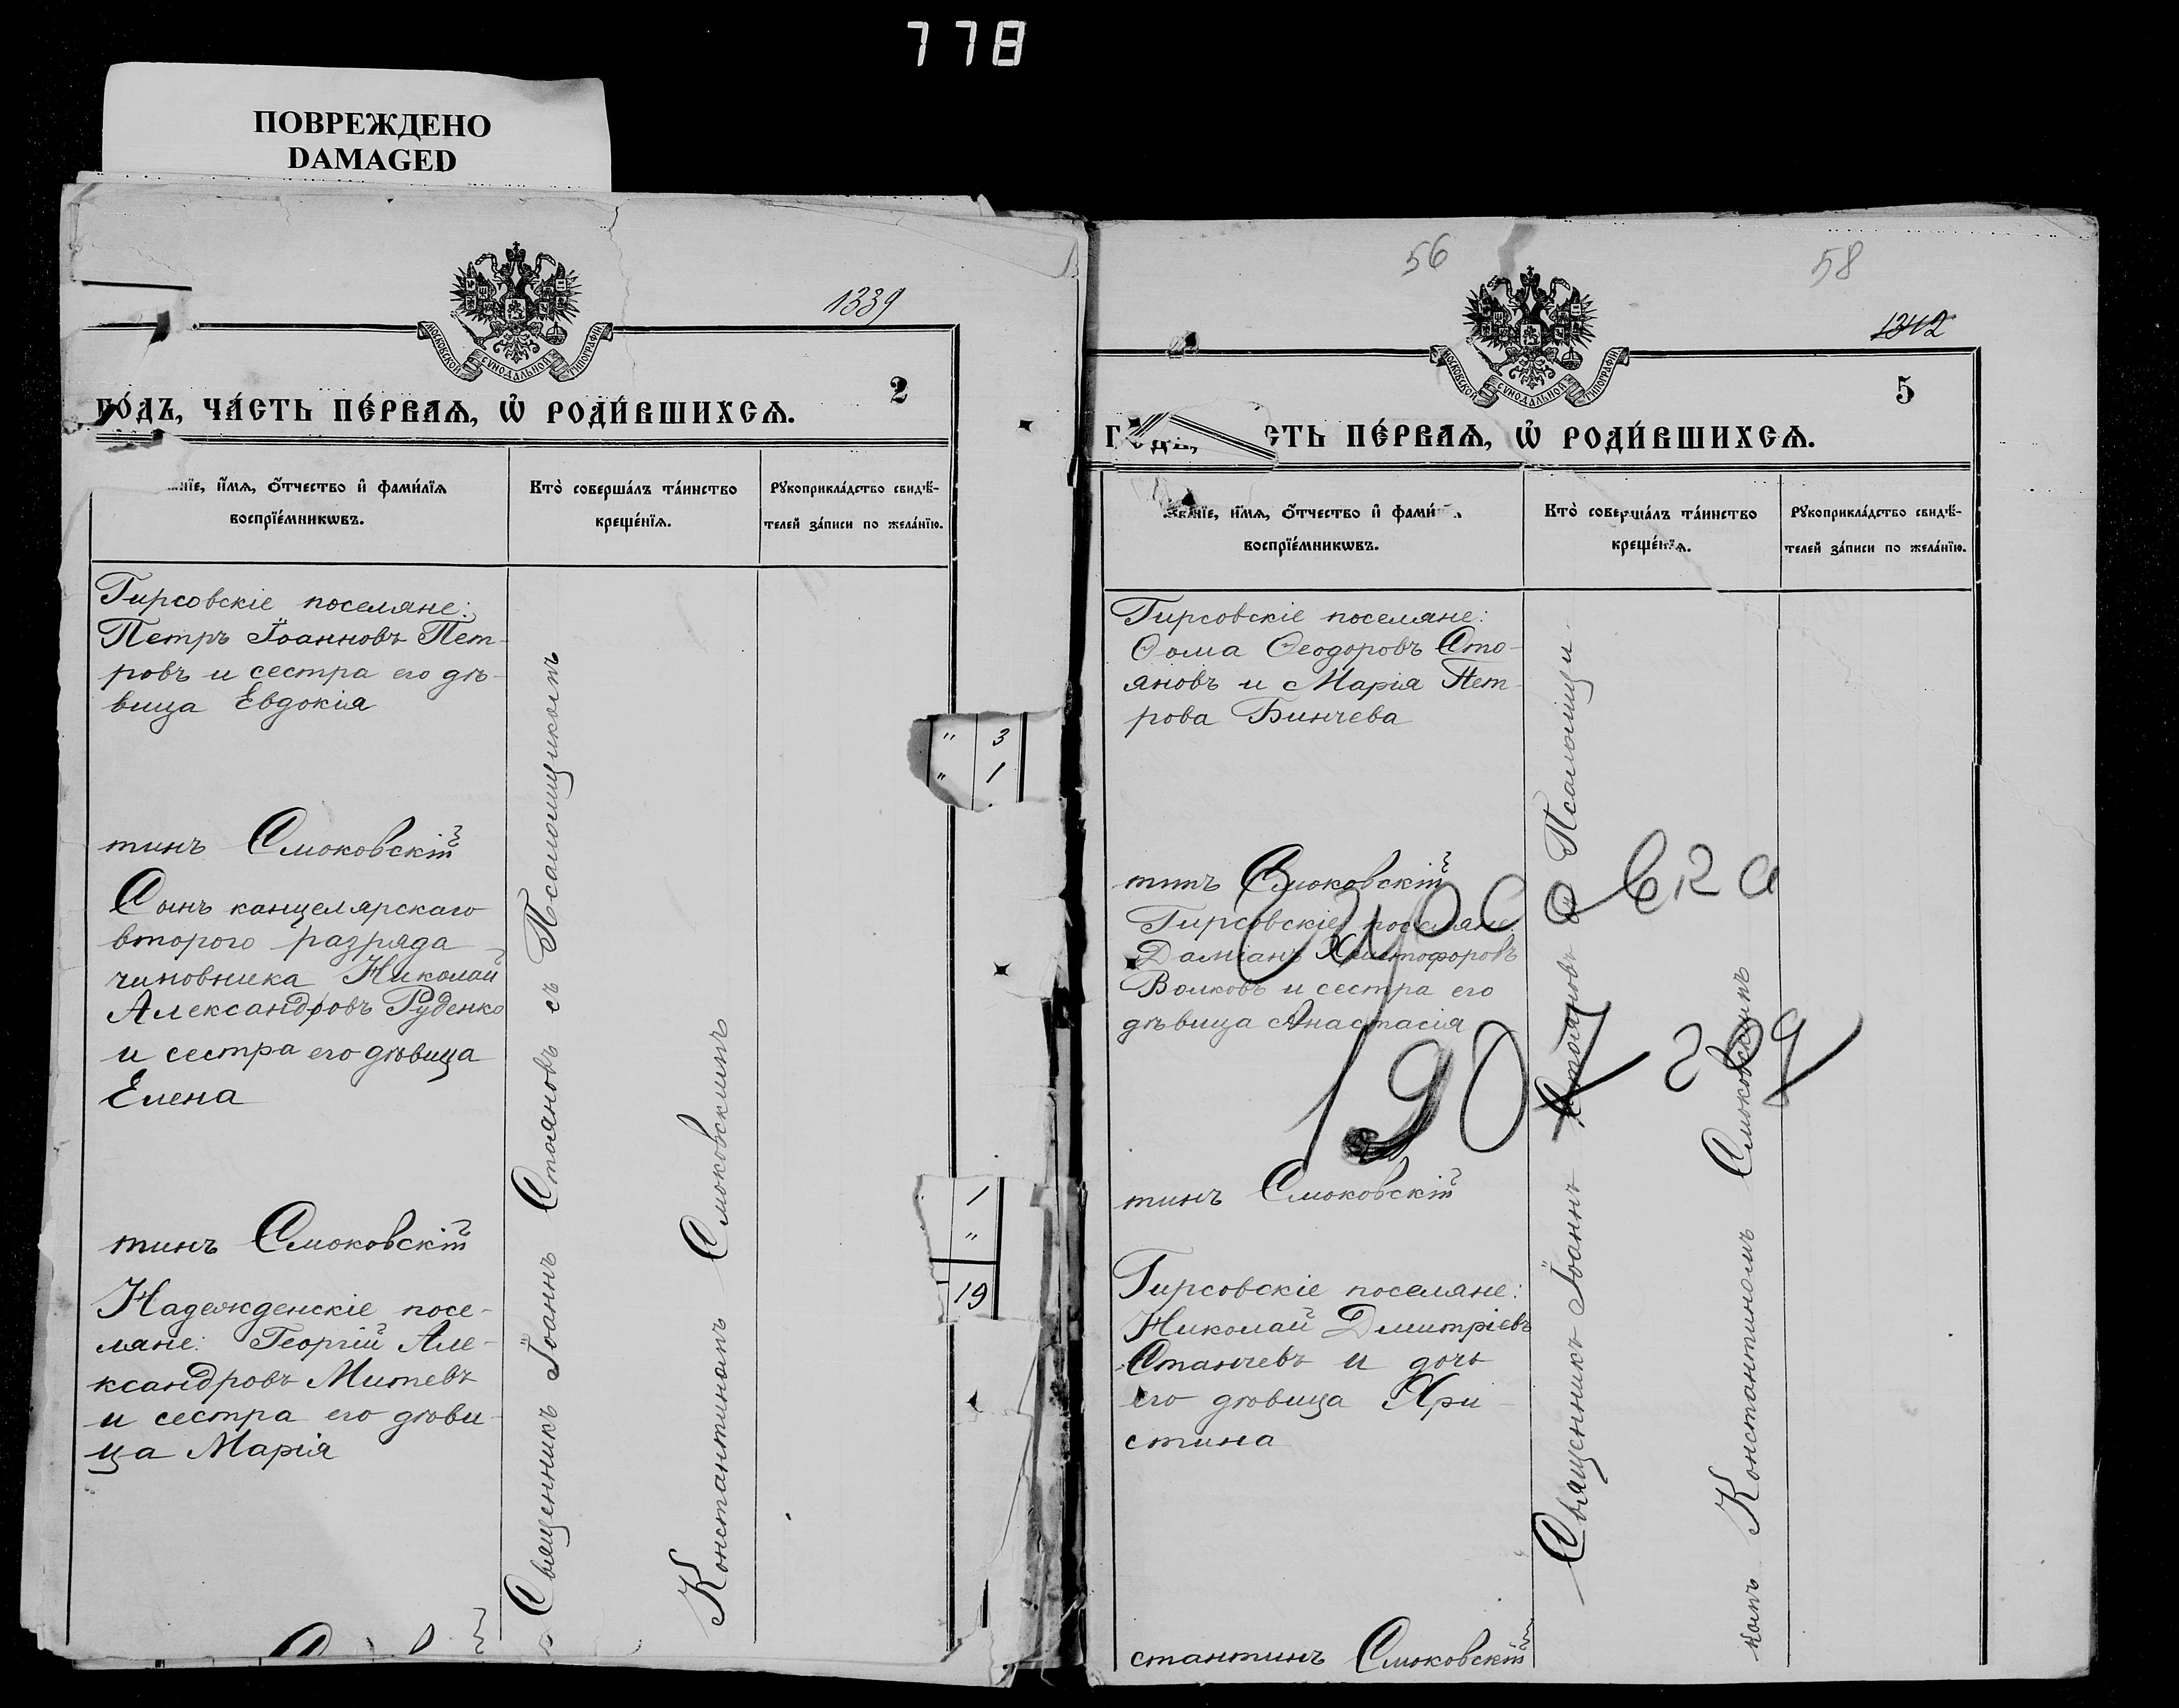 778
ПОВРЕЖДЕНО
DAMAGED
1339
МОСКОВСКОЙ СѴНОДАЛЬНОЙ ТИПОГРАФІИ
2
го́дъ, ча́сть пе́рваѧ, ѡ҆ роди́вшихсѧ.
нїе, и҆́мѧ, о҆́тчество и҆ фами́лїѧ
воспрїе́мникѡвъ.
Кто̀ соверша́лъ та́инство
креще́нїѧ.
Рꙋкоприкла́дство свидѣ́-
телей за́писи по жела́нїю.
Гирсовскіе поселяне:
Петръ Іоанновъ Пет-
ровъ и сестра его дѣ-
вица Евдокія
тинъ Смоковскій
Сынъ канцелярскаго
второго разряда
чиновника Николай
Александровъ Руденко
и сестра его дѣвица
Елена
тинъ Смоковскій
Надежденскіе посе-
ляне: Георгій Але-
ксандровъ Митевъ
и сестра его дѣви-
ца Марія
Священникъ Іоаннъ Стояновъ съ Псаломщикомъ
Константиномъ Смоковскимъ
" 3
" 1
1
"
19
56
58
1342
МОСКОВСКОЙ СѴНОДАЛЬНОЙ ТИПОГРАФІИ
5
сть пе́рваѧ, ѡ҆ роди́вшихсѧ.
Зва́нїе, и҆́мѧ, о҆́тчество и҆ фами́
воспрїе́мникѡвъ.
Кто̀ соверша́лъ та́инство
креще́нїѧ.
Рꙋкоприкла́дство свидѣ́-
телей за́писи по жела́нїю.
Гирсовскіе поселяне:
Ѳома Ѳеодоровъ Сто-
яновъ и Марія Пет-
рова Бинчева
тинъ Смоковскій
Гирсовскіе поселяне:
Даміанъ Христофоровъ
Волковъ и сестра его
дѣвица Анастасія
190
тинъ Смоковскій
Гирсовскіе поселяне:
Николай Дмитріевъ
Станчевъ и дочь
его дѣвица Хри-
стина
стантинъ Смоковскій
Священникъ Іоаннъ Стояновъ съ Псаломщи-
комъ Константиномъ Смоковскимъ